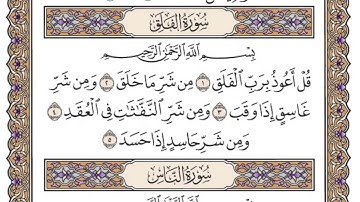 سُورَةُ الفَلَقِ
بِسْمِ ٱللَّهِ ٱلرَّحْمَٰنِ ٱلرَّحِيمِ
قُلْ أَعُوذُ بِرَبِّ ٱلْفَلَقِ ١ مِن شَرِّ مَا خَلَقَ ٢ وَمِن شَرِّ
غَاسِقٍ إِذَا وَقَبَ ٣ وَمِن شَرِّ ٱلنَّفَّٰثَٰتِ فِى ٱلْعُقَدِ ٤
وَمِن شَرِّ حَاسِدٍ إِذَا حَسَدَ ٥
سُورَةُ النَّاسِ